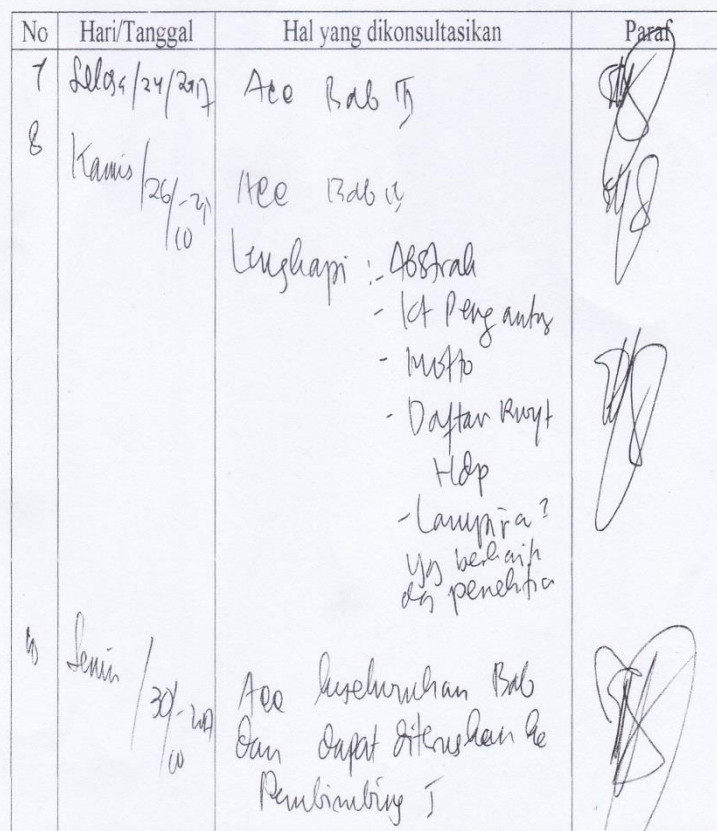 No Hari/Tanggal Hal yang dikonsultasikan Paraf
7 Selasa/24/2017 Acc Bab
8 Kamis/26/10 Acc Bab
Lengkapi :- Abstrak
- Kt Pengantar
- Motto
- Daftar Rwyt
Hdp
- Lampira²
yg berkait
dg penelitia
Senin/30/10-2017 Acc keseluruhan Bab
dan dapat diteruskan ke
Pembimbing I